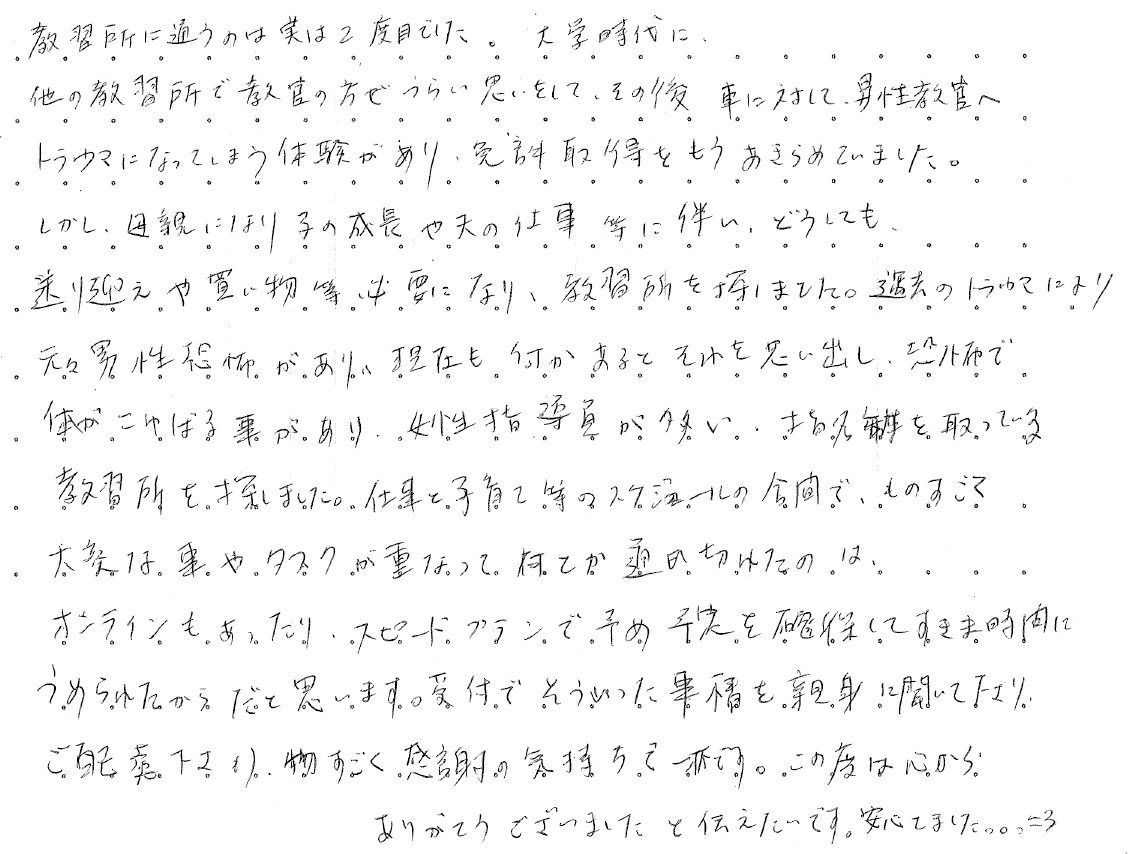 教習所に通うのは実は2度目でした。大学時代に、
他の教習所で教官の方でつらい思いをして、その後車に対して、男性教官へ
トラウマになってしまう体験があり、免許取得をもうあきらめていました。
しかし、母親になり子の成長や夫の仕事等に伴い、どうしても、
送り迎えや買い物等必要になり、教習所を探しました。過去のトラウマにより
元々男性恐怖があり、現在も何かあるとそれを思い出し、恐怖で
体がこわばる事があり、女性指導員が多い、指名制を取っている
教習所を探しました。仕事と子育て等のスケジュールの合間で、ものすごく
大変な事やタスクが重なって、何とか乗り切れたのは、
オンラインもあったり、スピードプランで予め予定を確保してすきま時間に
うめられたからだと思います。受付でそういった事情を親身に聞いて下さり、
ご配慮下さり、物すごく感謝の気持ちで一杯です。この度は心から
ありがとうございましたと伝えたいです。安心てました。。。=3